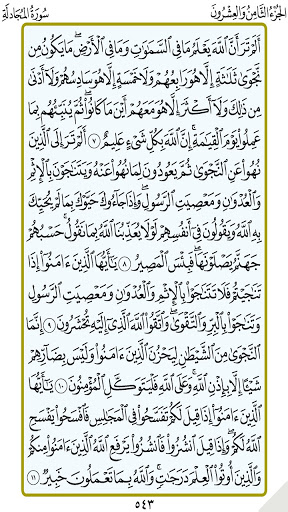 الجزء الثامن والعشرون سورة المجادلة
أَلَمْ تَرَ أَنَّ ٱللَّهَ يَعْلَمُ مَا فِي ٱلسَّمَٰوَٰتِ وَمَا فِي ٱلْأَرْضِۖ مَا يَكُونُ مِن
نَّجْوَىٰ ثَلَٰثَةٍ إِلَّا هُوَ رَابِعُهُمْ وَلَا خَمْسَةٍ إِلَّا هُوَ سَادِسُهُمْ وَلَآ أَدْنَىٰ
مِن ذَٰلِكَ وَلَآ أَكْثَرَ إِلَّا هُوَ مَعَهُمْ أَيْنَ مَا كَانُوا۟ۖ ثُمَّ يُنَبِّئُهُم بِمَا
عَمِلُوا۟ يَوْمَ ٱلْقِيَٰمَةِۚ إِنَّ ٱللَّهَ بِكُلِّ شَيْءٍ عَلِيمٌ ٧ أَلَمْ تَرَ إِلَى ٱلَّذِينَ
نُهُوا۟ عَنِ ٱلنَّجْوَىٰ ثُمَّ يَعُودُونَ لِمَا نُهُوا۟ عَنْهُ وَيَتَنَٰجَوْنَ بِٱلْإِثْمِ
وَٱلْعُدْوَٰنِ وَمَعْصِيَتِ ٱلرَّسُولِۖ وَإِذَا جَآءُوكَ حَيَّوْكَ بِمَا لَمْ يُحَيِّكَ
بِهِ ٱللَّهُ وَيَقُولُونَ فِيٓ أَنفُسِهِمْ لَوْلَا يُعَذِّبُنَا ٱللَّهُ بِمَا نَقُولُۚ حَسْبُهُمْ
جَهَنَّمُ يَصْلَوْنَهَاۖ فَبِئْسَ ٱلْمَصِيرُ ٨ يَٰٓأَيُّهَا ٱلَّذِينَ ءَامَنُوٓا۟ إِذَا
تَنَٰجَيْتُمْ فَلَا تَتَنَٰجَوْا۟ بِٱلْإِثْمِ وَٱلْعُدْوَٰنِ وَمَعْصِيَتِ ٱلرَّسُولِ
وَتَنَٰجَوْا۟ بِٱلْبِرِّ وَٱلتَّقْوَىٰۖ وَٱتَّقُوا۟ ٱللَّهَ ٱلَّذِيٓ إِلَيْهِ تُحْشَرُونَ ٩ إِنَّمَا
ٱلنَّجْوَىٰ مِنَ ٱلشَّيْطَٰنِ لِيَحْزُنَ ٱلَّذِينَ ءَامَنُوا۟ وَلَيْسَ بِضَآرِّهِمْ
شَيْـًٔا إِلَّا بِإِذْنِ ٱللَّهِۚ وَعَلَى ٱللَّهِ فَلْيَتَوَكَّلِ ٱلْمُؤْمِنُونَ ١٠ يَٰٓأَيُّهَا
ٱلَّذِينَ ءَامَنُوٓا۟ إِذَا قِيلَ لَكُمْ تَفَسَّحُوا۟ فِي ٱلْمَجَٰلِسِ فَٱفْسَحُوا۟ يَفْسَحِ
ٱللَّهُ لَكُمْۖ وَإِذَا قِيلَ ٱنشُزُوا۟ فَٱنشُزُوا۟ يَرْفَعِ ٱللَّهُ ٱلَّذِينَ ءَامَنُوا۟ مِنكُمْ
وَٱلَّذِينَ أُوتُوا۟ ٱلْعِلْمَ دَرَجَٰتٍۚ وَٱللَّهُ بِمَا تَعْمَلُونَ خَبِيرٌ ١١
٥٤٣